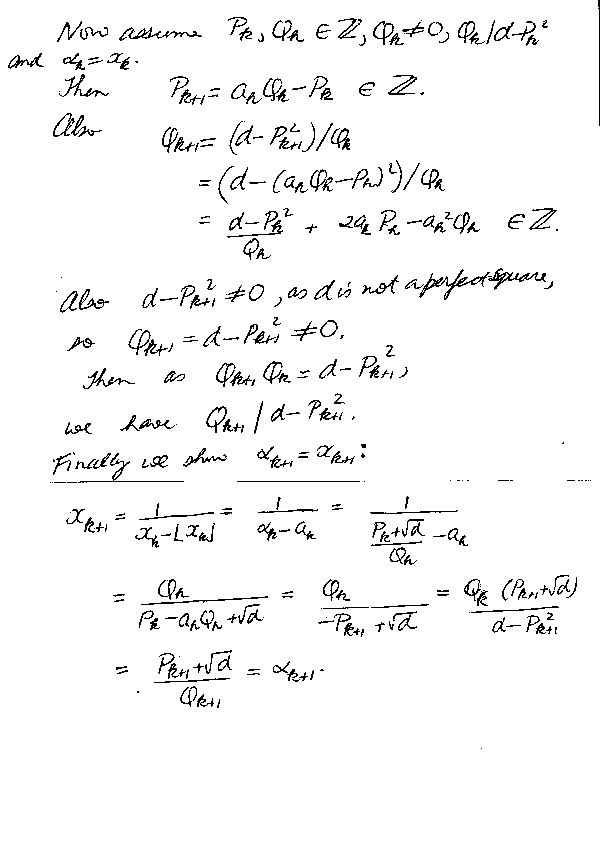 Now assume P_k, Q_k ∈ ℤ, Q_k ≠ 0, Q_k | d-P_k^2
and α_k = x_k.
Then P_{k+1} = a_k Q_k - P_k ∈ ℤ.
Also Q_{k+1} = (d - P_{k+1}^2)/Q_k
= (d - (a_k Q_k - P_k)^2)/Q_k
= \frac{d-P_k^2}{Q_k} + 2a_k P_k - a_k^2 Q_k ∈ ℤ.
Also d - P_{k+1}^2 ≠ 0, as d is not a perfect square,
so Q_{k+1} = d - P_{k+1}^2 ≠ 0.
Then as Q_{k+1} Q_k = d - P_{k+1}^2,
we have Q_{k+1} | d - P_{k+1}^2.
Finally we show α_{k+1} = x_{k+1}:
x_{k+1} = \frac{1}{x_k - ⌊x_k⌋} = \frac{1}{α_k - a_k} = \frac{1}{\frac{P_k+√d}{Q_k} - a_k}
= \frac{Q_k}{P_k - a_k Q_k + √d} = \frac{Q_k}{-P_{k+1} + √d} = \frac{Q_k (P_{k+1}+√d)}{d - P_{k+1}^2}
= \frac{P_{k+1}+√d}{Q_{k+1}} = α_{k+1}.